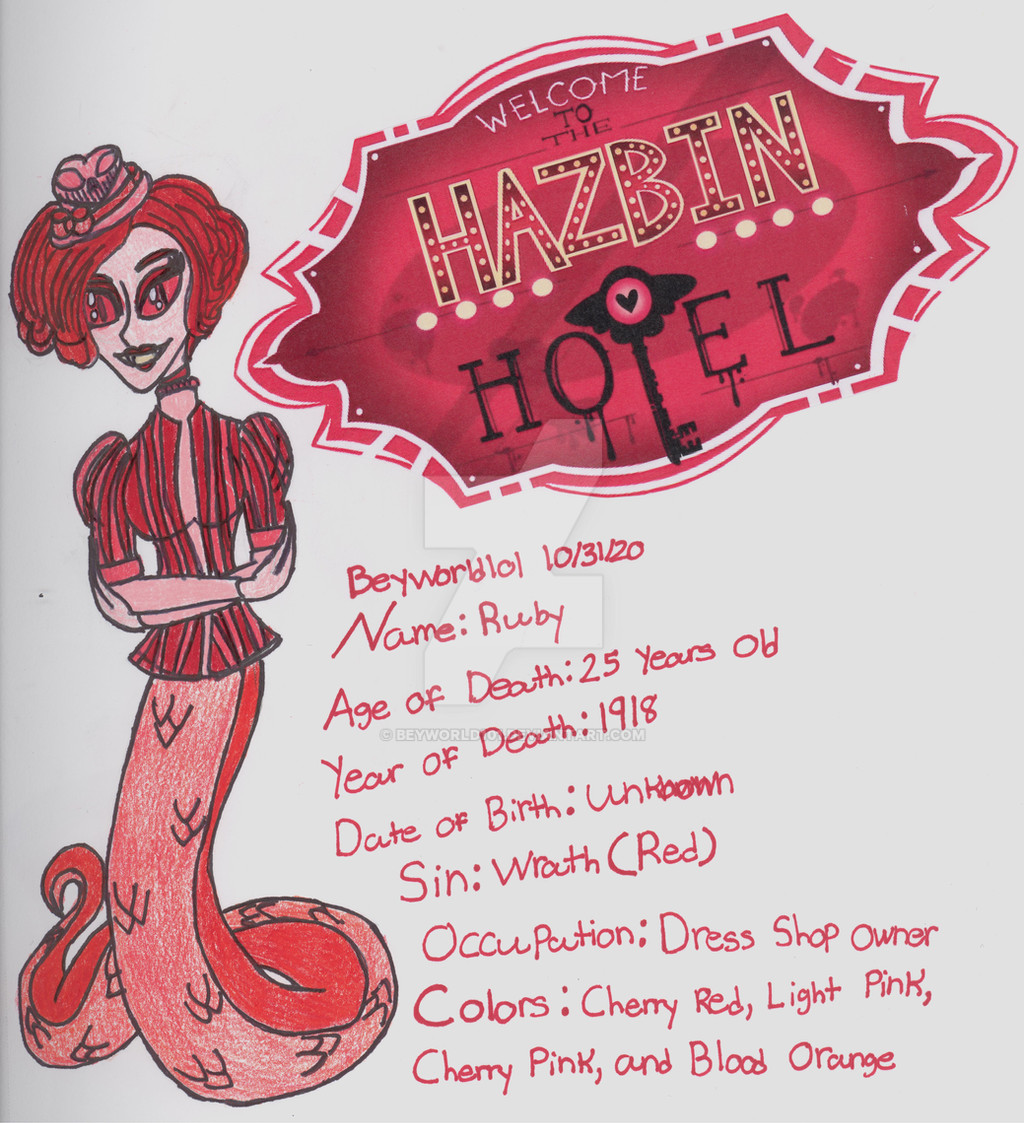 WELCOME
TO
THE
HAZBIN
HOTEL
Beyworld101 10/31/20
Name: Ruby
Age of Death: 25 Years Old
Year of Death: 1918
© BEYWORLD101.DEVIANTART.COM
Date of Birth: Unknown
Sin: Wrath (Red)
Occupation: Dress Shop owner
Colors: Cherry Red, Light Pink,
Cherry Pink, and Blood Orange